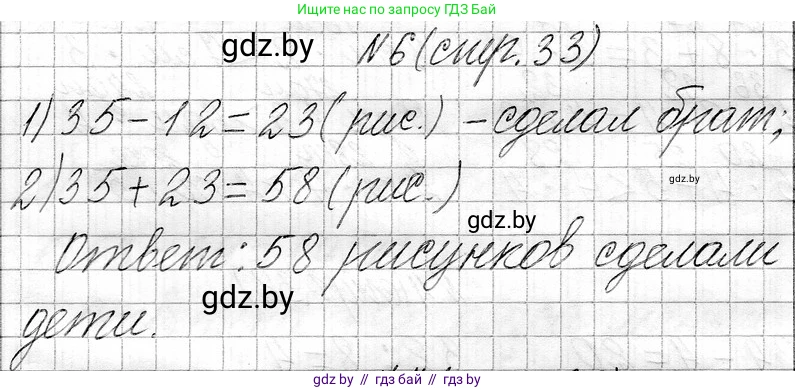 Ищите нас по запросу ГДЗ Бай
gdz.by
№6 (стр. 33)
1) 35 - 12 = 23 (рис.) - сделал брат;
gdz.by
2) 35 + 23 = 58 (рис.)
gdz.by
Ответ: 58 рисунков сделали
gdz.by
дети.
gdz.by // гдз бай // гдз.by